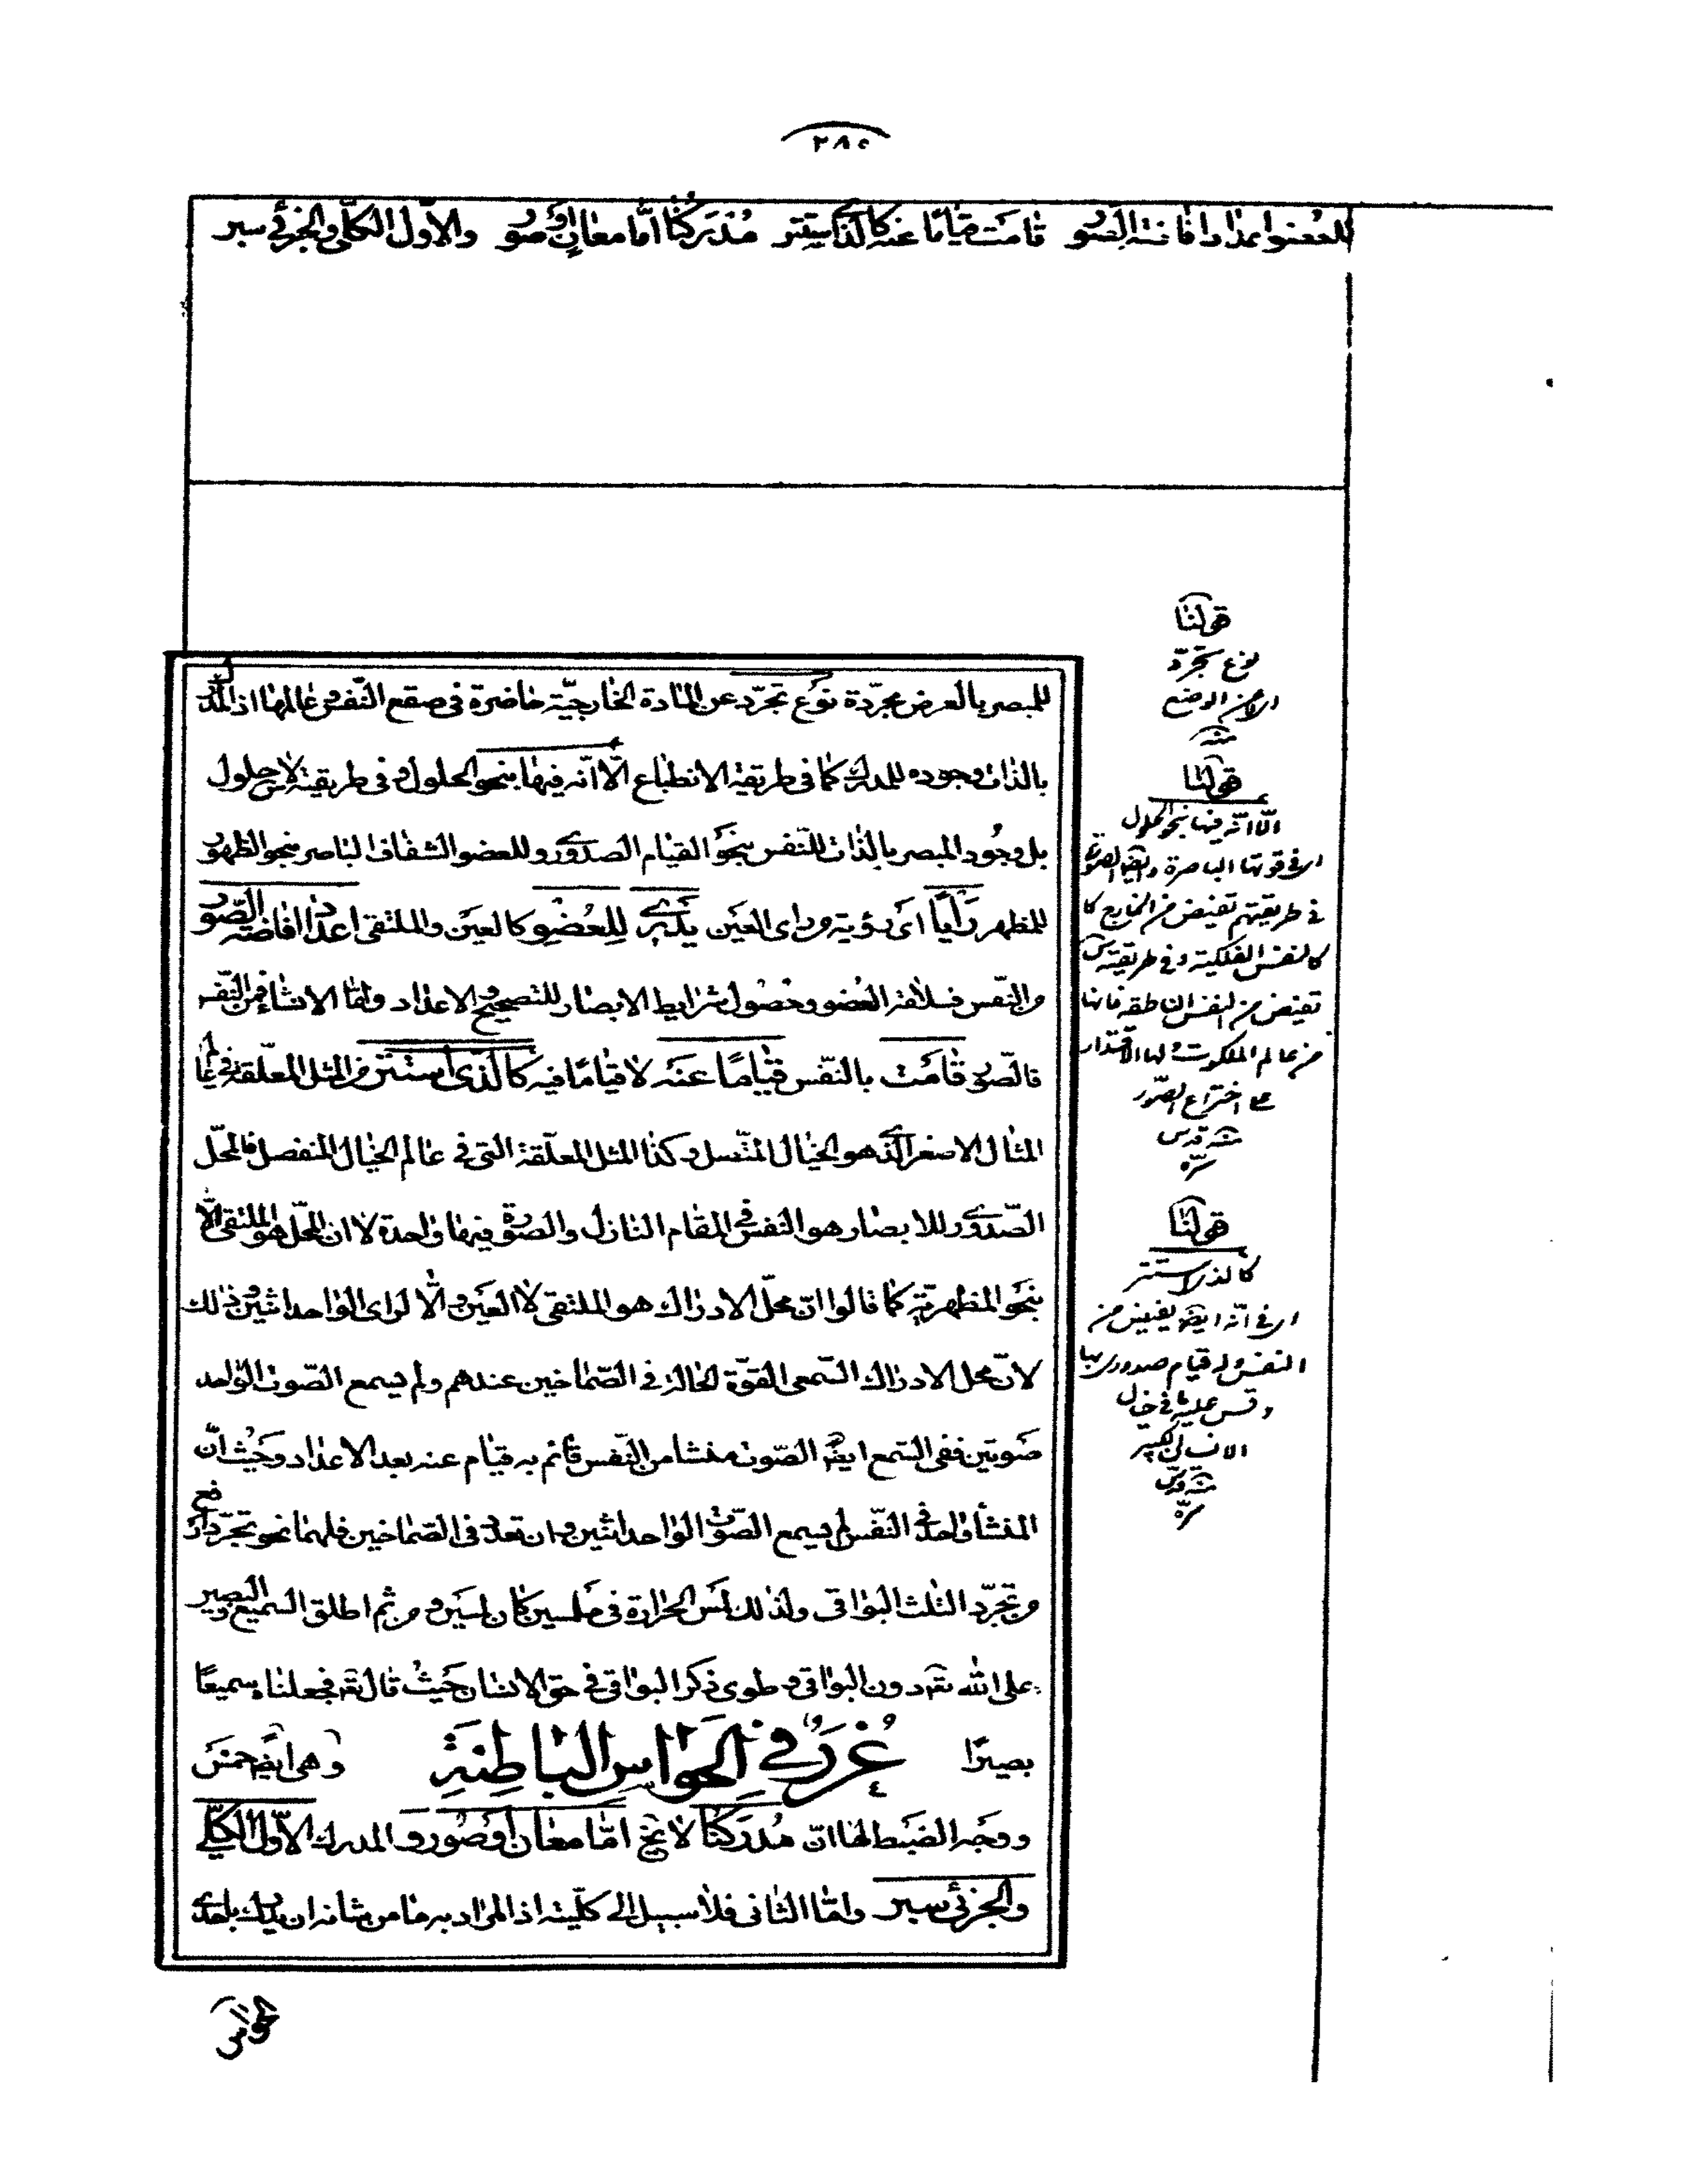 ٢٨٥
للعضو اعدادا فاضته الصور قامت قياما عنه كالذي استتر مدركنا اما معان او صور والاول الكلي والجزئي سبر
للمبصر بالعرض مجرّدة نوع تجرّد عن المادة الخارجيّة حاضرة في صقع النّفس و عالمها اذ المدرك
بالذات وجوده للمدرك كما في طريقة الانطباع الّا انّه فيها بنحو الحلول و في طريقة لا حلول
بل وجود المبصر بالذات للنّفس بنحو القيام الصدوري و للعضو الشفاف الباصر بنحو الظهور
للمظهر رأيا اى رؤية و راى العين يدرى للعضو كالعين والملتقى اعدادا افاضة الصّور
من النّفس فسلامة العضو وحصول شرايط الابصار للتصحيح والاعداد وامّا الانشاء فمن النّفس
فالصّور قامت بالنّفس قياما عنه لا قياما فيه كالذي استتر من المثل المعلّقة في عالم
المثال الاصغر الذي هو الخيال المتّصل وكذا المثل المعلّقة التي في عالم الخيال المنفصل فالمحلّ
الصّدوري للابصار هو النفس في المقام النازل والصّورة فيها واحدة لا ان المحلّ هو الملتقى الّا
بنحو المظهريّة كما قالوا انّ محلّ الادراك هو الملتقى لا العين والّا لراى الواحد اثنين و ذلك
لانّ محل الادراك السّمعى القوّة الحالّة في الصّماخين عندهم ولم يسمع الصّوت الواحد
صوتين ففى السّمع ايضا الصّوت منشا من النّفس قائم به قيام عنه بعد الاعداد وحيث انّ
المنشأ واحد في النّفس لم يسمع الصّوت الواحد اثنين وان تعدد في الصّماخين فلهما نحو تجرّد ارفع
من تجرّد الثلث البواقى ولذلك لمس الحرارة في ملمسين كان لمسين و من ثم اطلق السميع والبصير
على الله تعـ دون البواقى و طوى ذكر البواقى في حق الانسان حيث قال تعـ فجعلناه سميعا
بصيرا غرر في الحواس الباطنة و هى ايضا خمس
و وجه الضبط لها انّ مدركنا لا يخ امّا معان او صور و المدرك الاوّل الكلّي
والجزئي سبر وامّا الثانى فلا سبيل الى كلّيته اذ المراد به ما من شانه ان يدرك باحدى
الحواس
قولنا
نوع تجرّد
اى عن الوضع
منه
قولنا
الّا انّه فيها بنحو الحلول
اى في قوتها الباصرة وايضا الصورة
في طريقتهم تفيض من الخارج كا
كالنفس الفلكية و في طريقته س
تفيض من النفس الناطقة فانها
من عالم الملكوت ولها الاقتدار
على اختراع الصّور
منه قدس
سرّه
قولنا
كالذي استتر
اى في انّه ايضا يفيض من
النفس وله قيام صدوري بها
وقس عليه في خيال
الانسان الكبير
منه قدس
سرّه